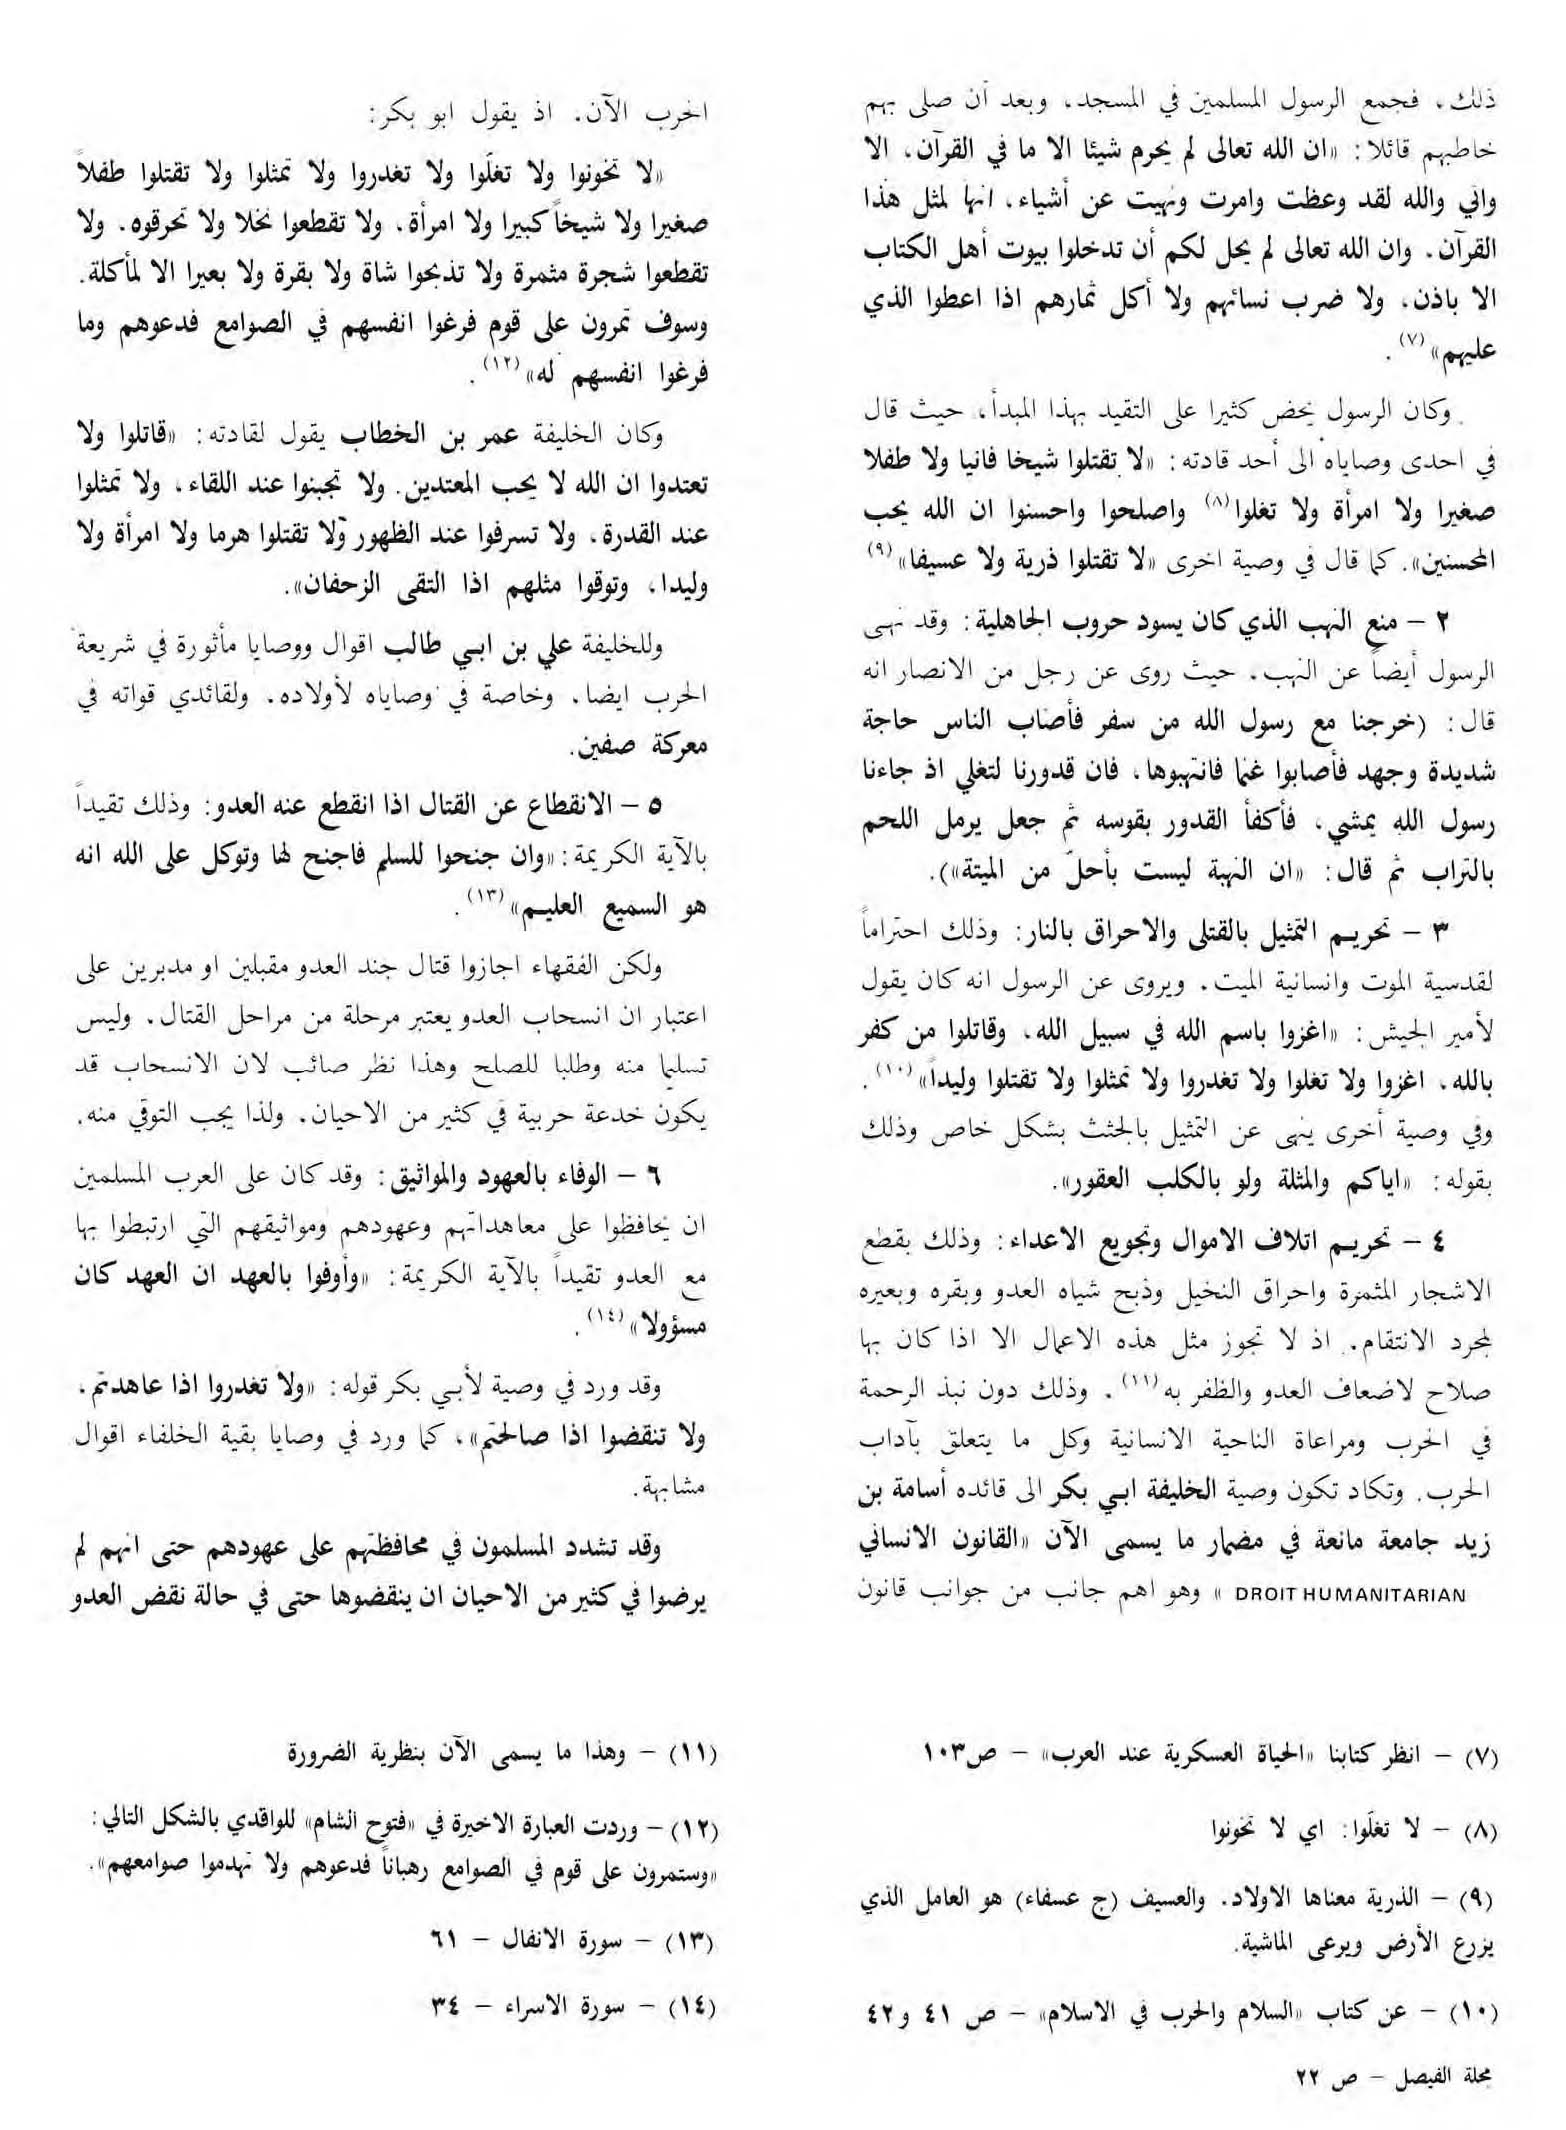 ذلك، فجمع الرسول المسلمين في المسجد، وبعد أن صلى بهم
خاطبهم قائلا: «ان الله تعالى لم يحرم شيئا الا ما في القرآن، الا
واني والله لقد وعظت وامرت ونهيت عن أشياء، انها لمثل هذا
القرآن. وان الله تعالى لم يحل لكم أن تدخلوا بيوت أهل الكتاب
الا باذن، ولا ضرب نسائهم ولا أكل ثمارهم اذا اعطوا الذي
عليهم»(٧).
وكان الرسول يحض كثيرا على التقيد بهذا المبدأ، حيث قال
في احدى وصاياه الى أحد قادته: «لا تقتلوا شيخا فانيا ولا طفلا
صغيرا ولا امرأة ولا تغلوا(٨) واصلحوا واحسنوا ان الله يحب
المحسنين». كما قال في وصية اخرى «لا تقتلوا ذرية ولا عسيفا»(٩)
٢ – منع النهب الذي كان يسود حروب الجاهلية: وقد نهى
الرسول أيضاً عن النهب. حيث روى عن رجل من الانصار انه
قال: (خرجنا مع رسول الله من سفر فأصاب الناس حاجة
شديدة وجهد فأصابوا غنما فانتهبوها، فان قدورنا لتغلي اذ جاءنا
رسول الله يمشي، فأكفأ القدور بقوسه ثم جعل يرمل اللحم
بالتراب ثم قال: «ان النهبة ليست بأحلّ من الميتة»).
٣ – تحريم التمثيل بالقتلى والاحراق بالنار: وذلك احتراماً
لقدسية الموت وانسانية الميت. ويروى عن الرسول انه كان يقول
لأمير الجيش: «اغزوا باسم الله في سبيل الله، وقاتلوا من كفر
بالله، اغزوا ولا تغلوا ولا تغدروا ولا تمثلوا ولا تقتلوا وليداً»(١٠).
وفي وصية أخرى ينهى عن التمثيل بالجثث بشكل خاص وذلك
بقوله: «اياكم والمثلة ولو بالكلب العقور».
٤ – تحريم اتلاف الاموال وتجويع الاعداء: وذلك بقطع
الاشجار المثمرة واحراق النخيل وذبح شياه العدو وبقره وبعيره
لمجرد الانتقام. اذ لا تجوز مثل هذه الاعمال الا اذا كان بها
صلاح لاضعاف العدو والظفر به(١١). وذلك دون نبذ الرحمة
في الحرب ومراعاة الناحية الانسانية وكل ما يتعلق بآداب
الحرب. وتكاد تكون وصية الخليفة ابي بكر الى قائده أسامة بن
زيد جامعة مانعة في مضمار ما يسمى الآن «القانون الانساني
DROIT HUMANITARIAN » وهو اهم جانب من جوانب قانون
الحرب الآن. اذ يقول ابو بكر:
«لا تخونوا ولا تغلّوا ولا تغدروا ولا تمثلوا ولا تقتلوا طفلاً
صغيرا ولا شيخاً كبيرا ولا امرأة، ولا تقطعوا نخلا ولا تحرقوه، ولا
تقطعوا شجرة مثمرة ولا تذبحوا شاة ولا بقرة ولا بعيرا الا لمأكلة.
وسوف تمرون على قوم فرغوا انفسهم في الصوامع فدعوهم وما
فرغوا انفسهم له»(١٢).
وكان الخليفة عمر بن الخطاب يقول لقادته: «قاتلوا ولا
تعتدوا ان الله لا يحب المعتدين. ولا تجبنوا عند اللقاء، ولا تمثلوا
عند القدرة، ولا تسرفوا عند الظهور ولا تقتلوا هرما ولا امرأة ولا
وليدا، وتوقوا مثلهم اذا التقى الزحفان».
وللخليفة علي بن ابي طالب اقوال ووصايا مأثورة في شريعة
الحرب ايضا، وخاصة في وصاياه لأولاده، ولقائدي قواته في
معركة صفين.
٥ – الانقطاع عن القتال اذا انقطع عنه العدو: وذلك تقيداً
بالآية الكريمة: «وان جنحوا للسلم فاجنح لها وتوكل على الله انه
هو السميع العليم»(١٣).
ولكن الفقهاء اجازوا قتال جند العدو مقبلين او مدبرين على
اعتبار ان انسحاب العدو يعتبر مرحلة من مراحل القتال. وليس
تسليما منه وطلبا للصلح وهذا نظر صائب لان الانسحاب قد
يكون خدعة حربية في كثير من الاحيان. ولذا يجب التوقي منه.
٦ – الوفاء بالعهود والمواثيق: وقد كان على العرب المسلمين
ان يحافظوا على معاهداتهم وعهودهم ومواثيقهم التي ارتبطوا بها
مع العدو تقيداً بالآية الكريمة: «وأوفوا بالعهد ان العهد كان
مسؤولا»(١٤).
وقد ورد في وصية لأبي بكر قوله: «ولا تغدروا اذا عاهدتم،
ولا تنقضوا اذا صالحتم»، كما ورد في وصايا بقية الخلفاء اقوال
مشابهة.
وقد تشدد المسلمون في محافظتهم على عهودهم حتى انهم لم
يرضوا في كثير من الاحيان ان ينقضوها حتى في حالة نقض العدو
(٧) – انظر كتابنا «الحياة العسكرية عند العرب» – ص١٠٣
(٨) – لا تغلّوا: اي لا تخونوا
(٩) – الذرية معناها الاولاد. والعسيف (ج عسفاء) هو العامل الذي
يزرع الأرض ويرعى الماشية.
(١٠) – عن كتاب «السلام والحرب في الاسلام» – ص ٤١ و٤٢
(١١) – وهذا ما يسمى الآن بنظرية الضرورة
(١٢) – وردت العبارة الاخيرة في «فتوح الشام» للواقدي بالشكل التالي:
«وستمرون على قوم في الصوامع رهباناً فدعوهم ولا تهدموا صوامعهم».
(١٣) – سورة الانفال – ٦١
(١٤) – سورة الاسراء – ٣٤
مجلة الفيصل – ص ٢٢